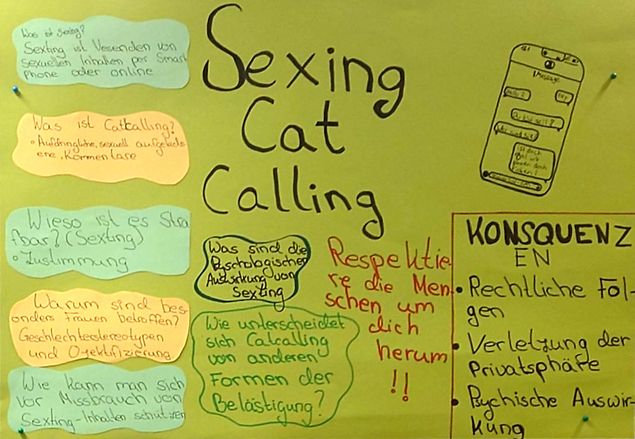 Was ist Sexing?
Sexting ist Vesenden von
sexuellen Inhalten per Smart
phone oder online
Was ist Catcalling?
• Aufdringliche, sexuell aufgelade
ene Kommentare
Wieso ist es Stra
fbar? (Sexting)
• Zustimmung
Warum sind bes
onders Frauen betroffen?
Geschlechterstereotypen
und Ojektifizierung
Wie kann man sich
vor Missbrauch von
Sexting-Inhalten schützen
Sexing
Cat
Calling
Was sind die
Pyschologischen
Auswirkung von
Sexting
Wie unterscheidet
sich Catcalling
von anderen
Formen der
Belästigung?
Respektie
re die Men-
schen um
dich
herum
!!
iMessage
KONSQUENZ
EN
• Rechtliche Fol-
gen
• Verletzung der
Privatsphäre
• Pychische Auswir-
kung